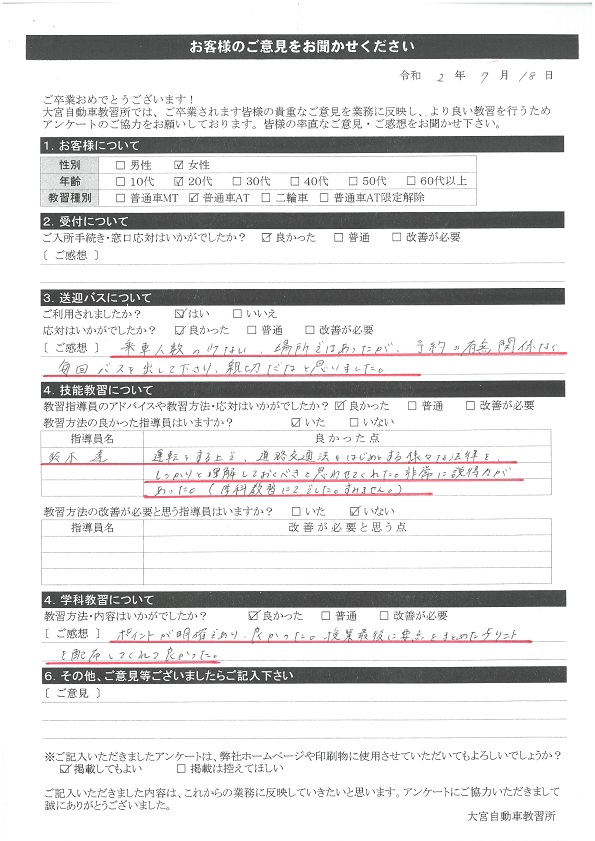 お客様のご意見をお聞かせください
令和 2 年 7 月 18 日
ご卒業おめでとうございます！
大宮自動車教習所では、ご卒業されます皆様の貴重なご意見を業務に反映し、より良い教習を行うため
アンケートのご協力をお願いしております。皆様の率直なご意見・ご感想をお聞かせ下さい。
1. お客様について
性別 □ 男性 ☑ 女性
年齢 □ 10代 ☑ 20代 □ 30代 □ 40代 □ 50代 □ 60代以上
教習種別 □ 普通車MT ☑ 普通車AT □ 二輪車 □ 普通車AT限定解除
2. 受付について
ご入所手続き・窓口応対はいかがでしたか？ ☑ 良かった □ 普通 □ 改善が必要
〔 ご感想 〕
3. 送迎バスについて
ご利用されましたか？ ☑ はい □ いいえ
応対はいかがでしたか？ ☑ 良かった □ 普通 □ 改善が必要
〔 ご感想 〕 乗車人数の少ない、場所ではあったが、予約の有無関係なく
毎回バスを出して下さり、親切だなと思いました。
4. 技能教習について
教習指導員のアドバイスや教習方法・応対はいかがでしたか？ ☑ 良かった □ 普通 □ 改善が必要
教習方法の良かった指導員はいますか？ ☑ いた □ いない
指導員名 良かった点
鈴木 運転をする上で、道路交通法をはじめとする様々な法律を、
しっかりと理解しておくべきと思わせてくれた。非常に説得力が
あった。（学科教習にてでした。すみません。）
教習方法の改善が必要と思う指導員はいますか？ □ いた ☑ いない
指導員名 改善が必要と思う点
4. 学科教習について
教習方法・内容はいかがでしたか？ ☑ 良かった □ 普通 □ 改善が必要
〔 ご感想 〕 ポイントが明確であり、良かった。授業最後に要点をまとめたプリント
を配布してくれて良かった。
6. その他、ご意見等ございましたらご記入下さい
〔 ご意見 〕
※ご記入いただきましたアンケートは、弊社ホームページや印刷物に使用させていただいてもよろしいでしょうか？
☑ 掲載してもよい □ 掲載は控えてほしい
ご記入いただきました内容は、これからの業務に反映していきたいと思います。アンケートにご協力いただきまして
誠にありがとうございました。
大宮自動車教習所